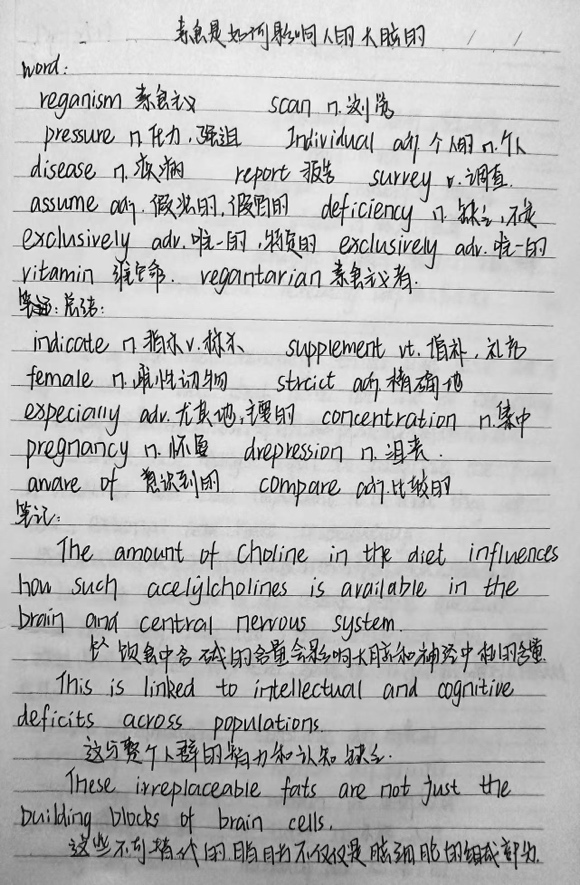 素食是如何影响人的大脑的
word:
reganism 素食主义 scan n.浏览
pressure n.压力,强迫 Individual adj.个人的 n.个人
disease n.疾病 report 报告 survey v.调查.
assume adj.假装的,假冒的 deficiency n.缺乏,不足
exclusively adv.唯一的, exclusively adv.唯一的
vitamin 维生命. regantarian 素食主义者.
总结:
indicate n.指示v.标示 supplement vt.增补,礼
female n.雌性动物 strcict adj.精确地
expecially adv.尤其地,主要的 concentration n.集中
pregnancy n.怀 drepression n.沮丧.
anare of 意识到的 compare adj.比较的
笔记:
The amount of choline in the diet influences
how such acelylcholines is available in the
brain and central nervous system.
饮食中含碱的含量会影响大脑和神经中枢的含量.
This is linked to intellectual and cognitive
deficits across populations.
这与整个人群的智力和认知缺乏.
These irreplaceable fats are not just the
building blocks of brain cells.
这些不可替代的脂肪不仅仅是脑细胞的组成部分.